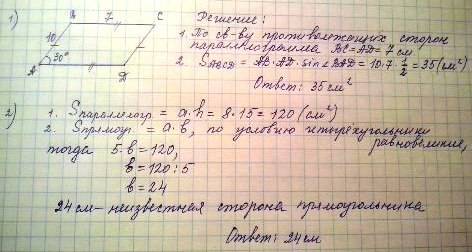 1)
B 7 C
10
30°
A D
Решение:
1. По св-ву противолежащих сторон
параллелограмма BC=AD=7 см
2. SABCD = AB·AD·sin∠BAD = 10·7·1/2 = 35(см²)
Ответ: 35 см²
2) 1. Sпараллелогр. = a·h = 8·15 = 120 (см²)
2. Sпрямоуг. = a·b, по условию четырёхугольники
равновеликие,
тогда 5·b = 120,
b = 120:5
b = 24
24 см – неизвестная сторона прямоугольника
Ответ: 24 см